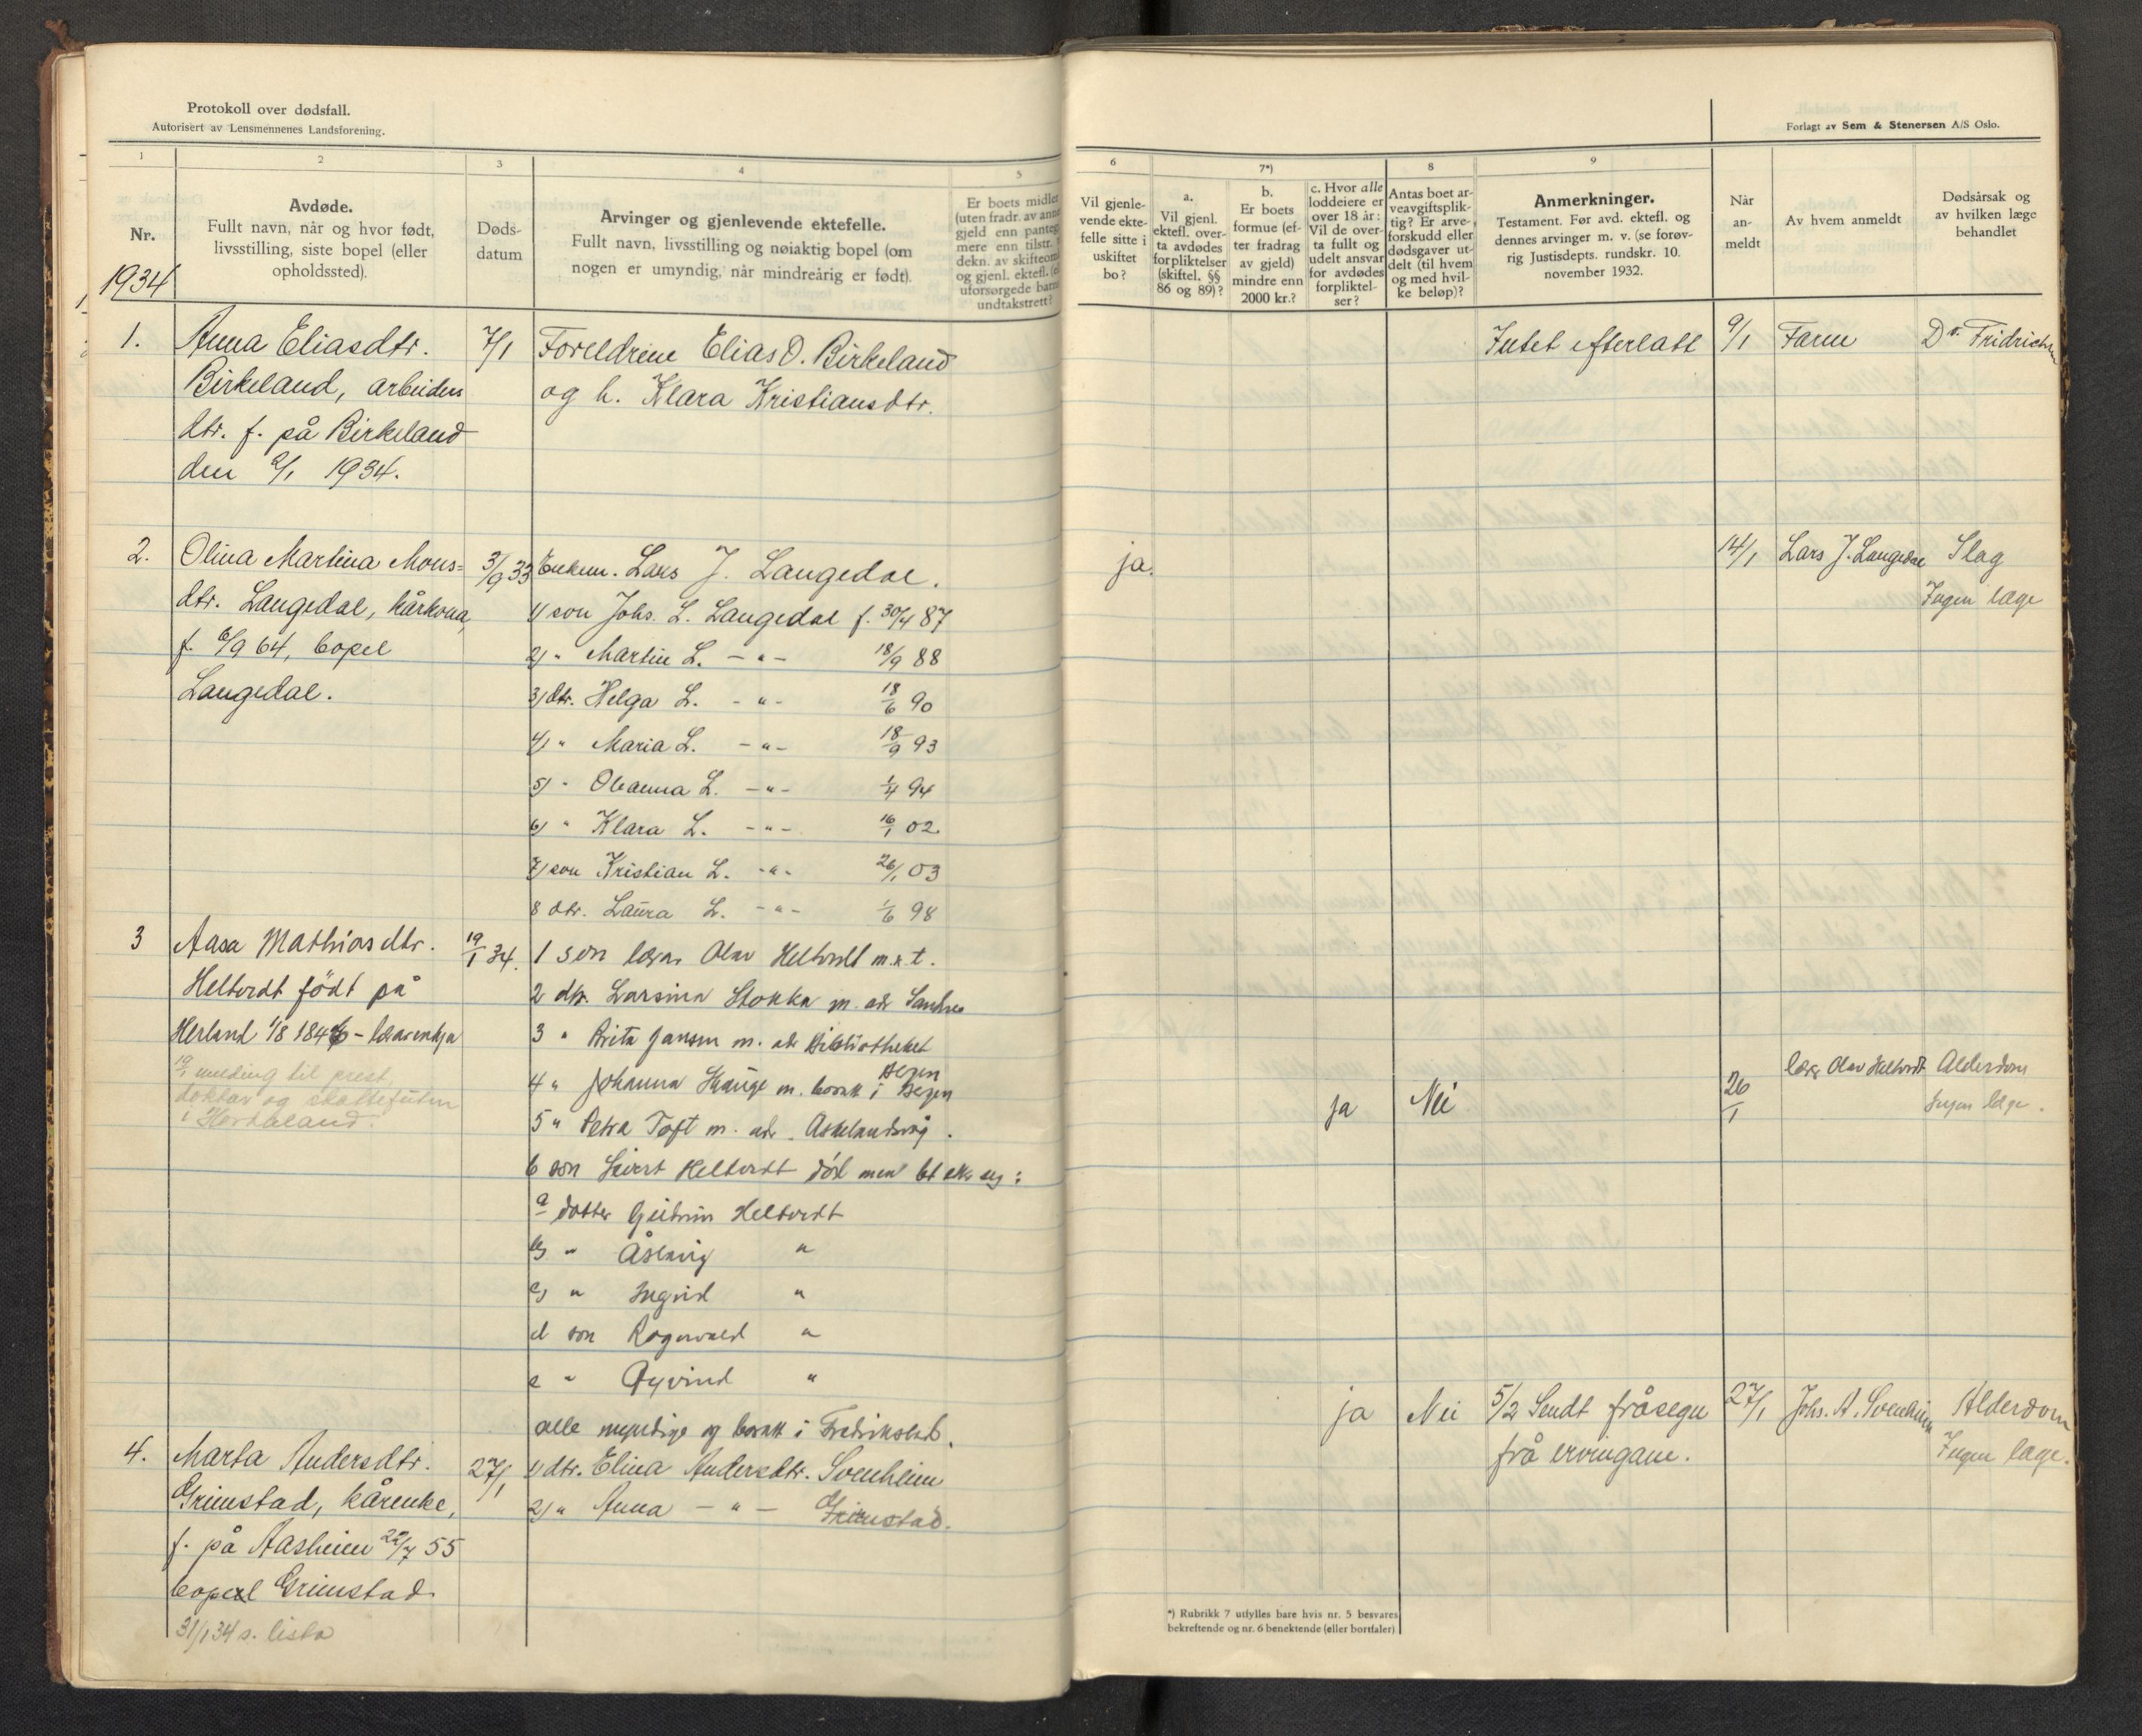 Protokoll over dødsfall.
Autorisert av Lensmennenes Landsforening.
1
2
3
4
5
Nr.
Avdøde.
Fullt navn, når og hvor født,
livsstilling, siste bopel (eller
opholdssted).
Døds-
datum
Arvinger og gjenlevende ektefelle.
Fullt navn, livsstilling og nøiaktig bopel (om
nogen er umyndig, når mindreårig er født).
Er boets midler
(uten fradr. av
gjeld enn
mere enn tilstr.
dekn. av
og gjenl. ektef.
uforsørgede
undtakstrett?
1934
1.
Anna Eliasdtr.
Birkeland, arbeiders
dtr. f. på Birkeland
den 2/1 1934.
7/1
Foreldrene Elias O. Birkeland
og h. Klara Kristiansdtr.
2.
Olina Martina Mons=
dtr. Langedal, kårkona,
f. 6/9 64, bopel
Langedal.
3/9 33
Enkem. Lars J. Langedal.
1) son Johs. L. Langedal f. 30/4 87
2) " Martin L. - " - 18/9 88
3) dtr. Helga L. - " - 18/6 90
4) " Maria L. - " - 18/9 93
5) " Oleanna L. - " - 1/4 94
6) " Klara L. - " - 16/1 02
7) son Kristian L. - " - 26/1 03
8 dtr. Laura L. - " - 1/6 98
3
Aasa Mathiasdtr.
Heltvedt født på
Herland 1/8 1846 -
19/1 melding til prest,
doktar og skattefuten
i Hordaland.
19/1 34.
1 son lærar Olav Heltvedt m.
2 dtr. Larsina Stokka m. adr
3 " Brita Jansen m. adr Bibliotheket
Bergen
4 " Johanna Hauge m. busatt i Bergen
5 " Petra Toft m. adr. Askelandsvåg.
6 son Sivert Heltvedt død men let ette seg:
a dotter Gudrun Heltvedt
b) " Åslaug "
c) " Ingrid "
d son Ragnvald "
e " Øyvind "
alle myndige og busatt i Fredrikstad.
4.
Marta Andersdtr.
Grimstad, kårenke,
f. på Aasheim 22/7 55
bopel Grimstad
31/1 34 s. lista
27/1
1) dtr. Elina Andersdtr. Soenheim
2) " Anna - " - Grimstad.
Forlagt av Sem & Stenersen A/S Oslo.
6
7*)
8
9
Vil gjenle-
vende ekte-
felle sitte i
uskiftet
bo?
a.
Vil gjenl.
ektefl. over-
ta avdødes
forpliktelser
(skiftel. §§
86 og 89)?
b.
Er boets
formue (ef-
ter fradrag
av gjeld)
mindre enn
2000 kr.?
c. Hvor alle
loddeiere er
over 18 år:
Vil de over-
ta fullt og
udelt ansvar
for avdødes
forpliktel-
ser?
Antas boet ar-
veavgiftsplik-
tig? Er arve-
forskudd eller
dødsgaver ut-
delt (til hvem
og med hvil-
ke beløp)?
Anmerkninger.
Testament. Før avd. ektefl. og
dennes arvinger m. v. (se forøv-
rig Justisdepts. rundskr. 10.
november 1932.
Når
an-
meldt
Av hvem anmeldt
Dødsårsak og
av hvilken læge
behandlet
Intet efterlatt
9/1
Faren
Dr. Fridrichsen
ja.
14/1
Lars J. Langedal
Slag
Ingen læge
ja
Nei
26/1
lærer Olav Heltvedt
Alderdom
Ingen læge.
ja
Nei
5/2 Sendt fråsegn
frå ervingane.
27/1
Johs. A. Soenheim
Alderdom
Ingen læge.
*) Rubrikk 7 utfylles bare hvis nr. 5 besvares
bekreftende og nr. 6 benektende (eller bortfaler)